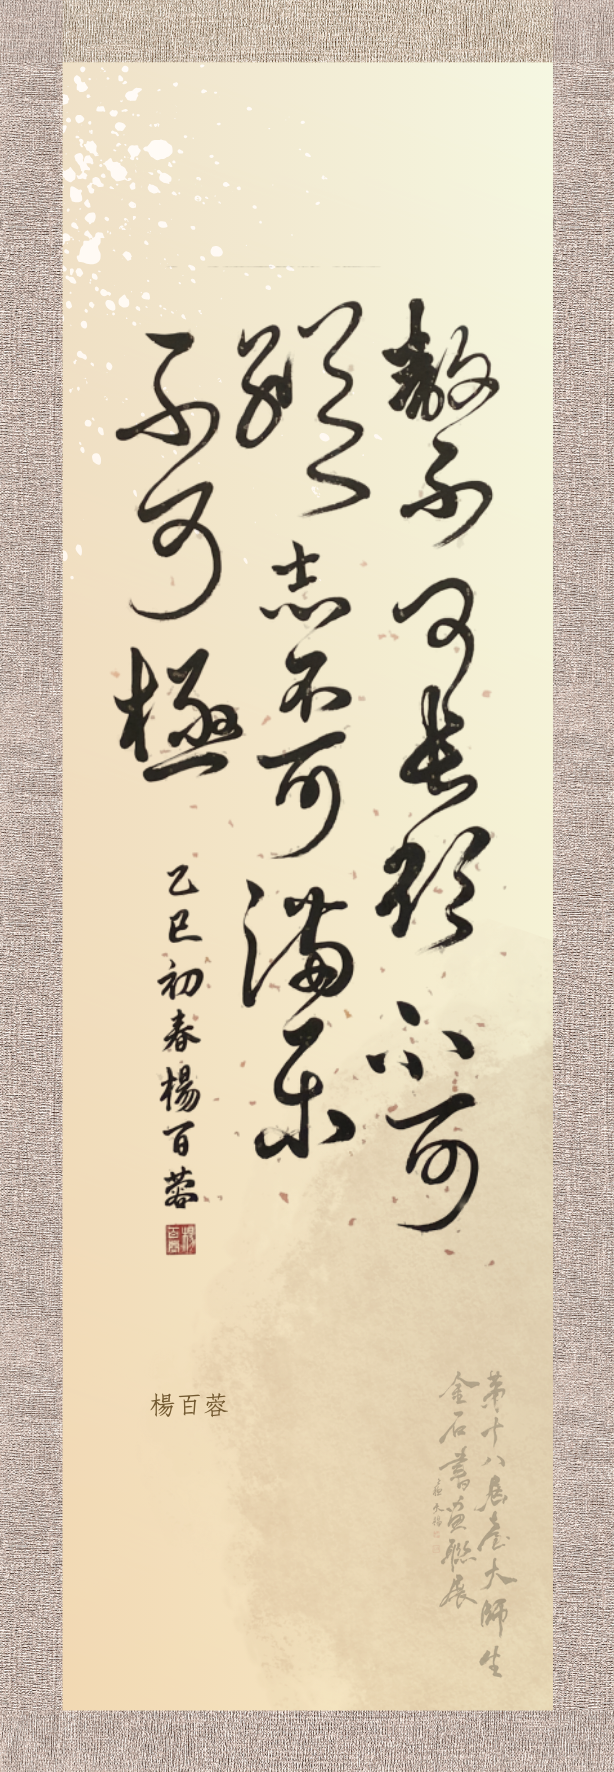 敖不可長欲不可
縱志不可滿樂
不可極
乙巳初春楊百蓉
楊百蓉
第十八屆臺大師生
金石書畫聯展